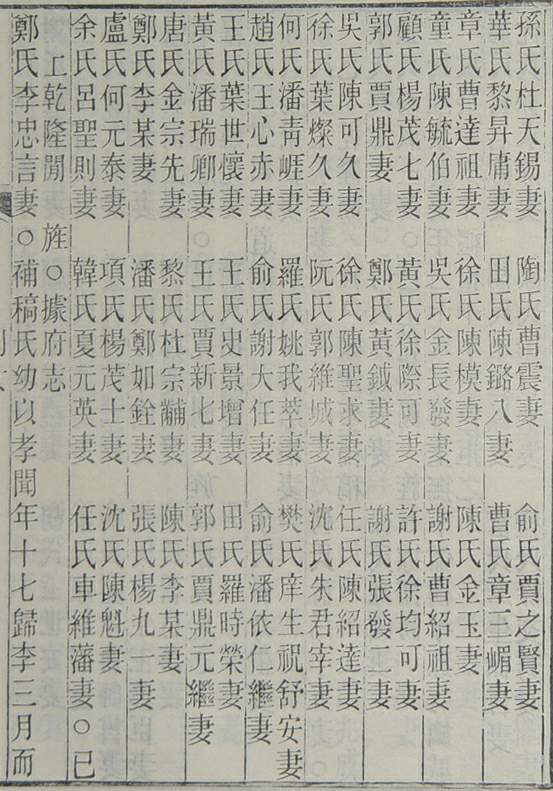 孫氏杜天錫妻 陶氏曹震妻 俞氏賈之賢妻
華氏黎昇庸妻 田氏陳鏴八妻 曹氏章三嵋妻
章氏曹達祖妻 徐氏陳模妻 陳氏金玉妻
童氏陳毓伯妻 吳氏金長發妻 謝氏曹紹祖妻
顧氏楊茂七妻 黃氏徐際可妻 許氏徐均可妻
郭氏賈鼎妻 鄭氏黃鉞妻 謝氏張發二妻
吳氏陳可久妻 徐氏陳聖求妻 任氏陳紹達妻
徐氏葉燦久妻 阮氏郭維城妻 沈氏朱君宰妻
何氏潘靑崕妻 羅氏姚我萃妻 樊氏庠生祝舒安妻
趙氏王心赤妻 俞氏謝大任妻 俞氏潘依仁繼妻
王氏葉世懷妻 王氏史景增妻 田氏羅時榮妻
黃氏潘瑞卿妻 王氏賈新七妻 郭氏賈鼎元繼妻
唐氏金宗先妻 黎氏杜宗黼妻 陳氏李某妻
鄭氏李某妻 潘氏鄭如銓妻 張氏楊九一妻
盧氏何元泰妻 項氏楊茂士妻 沈氏陳魁妻
余氏呂聖則妻 韓氏夏元英妻 任氏車維藩妻○已
上乾隆閒 旌○據府志
鄭氏李忠言妻○補稿氏幼以孝聞年十七歸李三月而